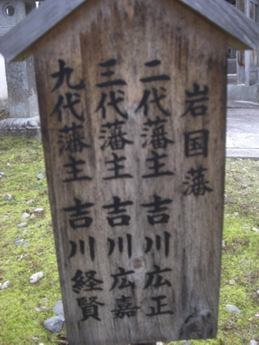 岩国藩
二代藩主 吉川広正
三代藩主 吉川広嘉
九代藩主 吉川経賢